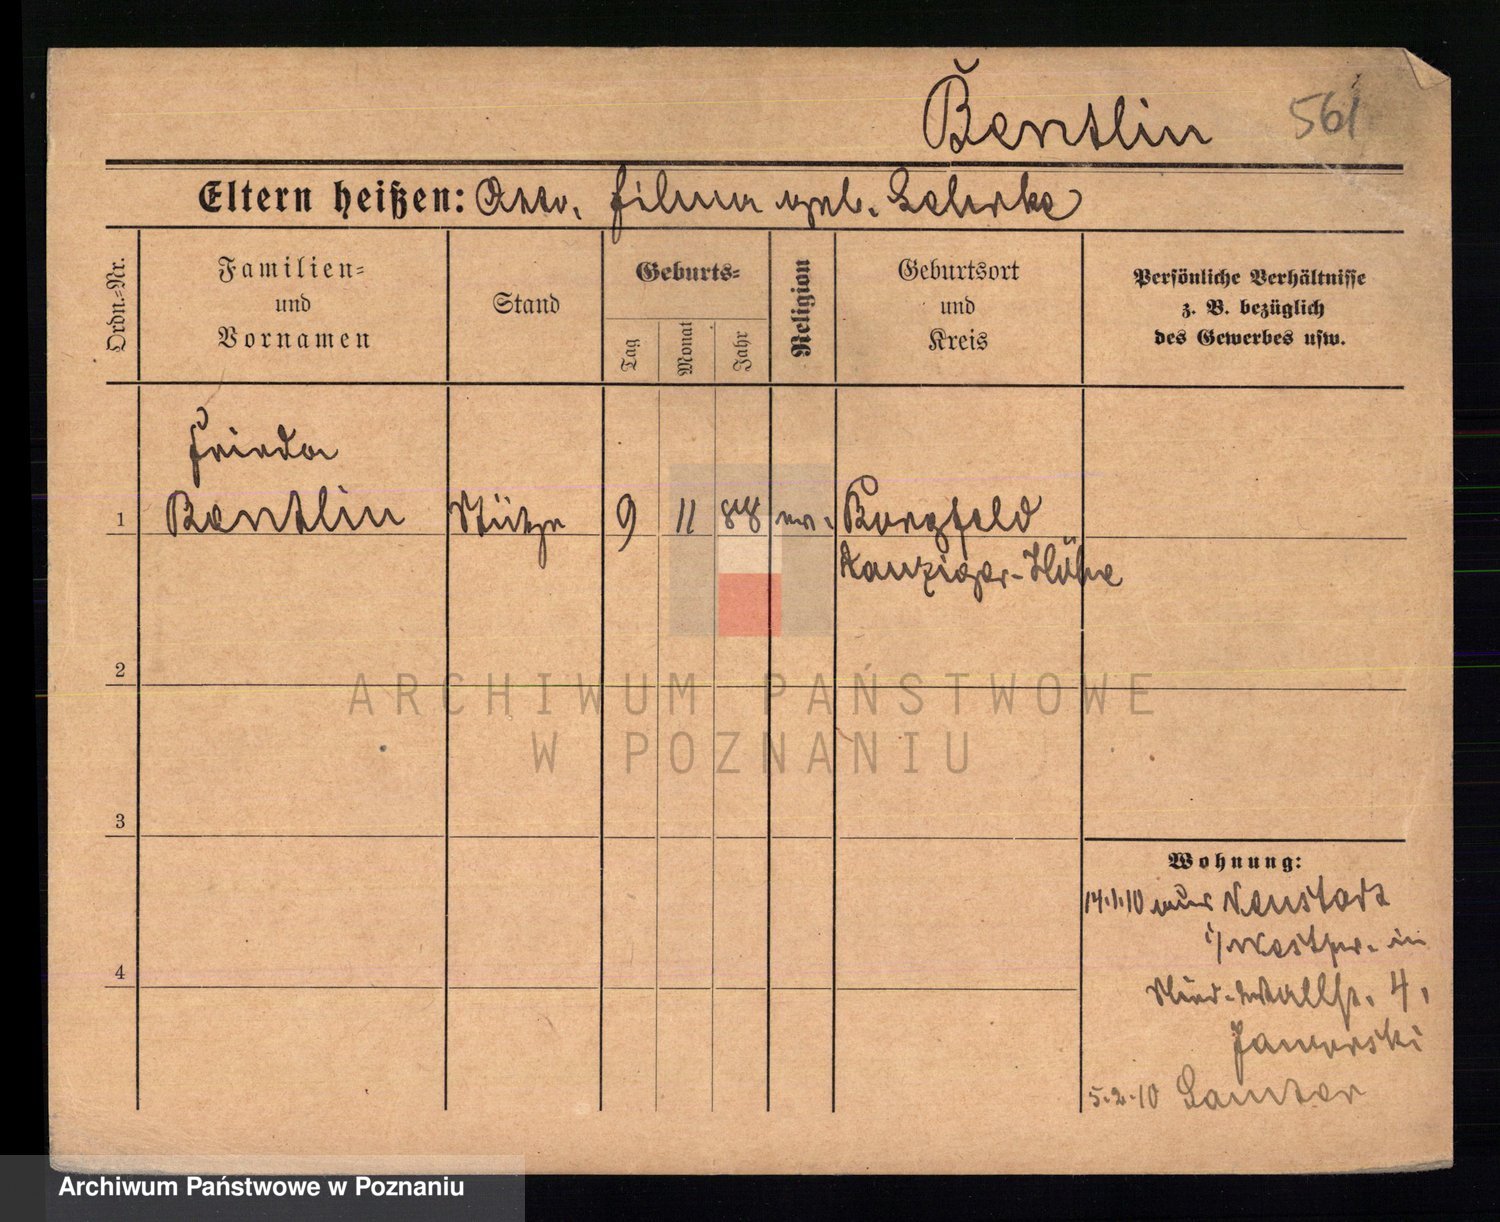 Bentlin 561
Eltern heißen: Otto, geb. Gehrke
Ordn.=Nr.
Familien=
und
Vornamen
Stand
Geburts=
Tag
Monat
Jahr
Religion
Geburtsort
und
Kreis
Persönliche Verhältnisse
z. B. bezüglich
des Gewerbes usw.
Frieda
1 Bentlin Stütze 9 11 88 ev. Borgfeld
Danziger-Höhe
2
3
4
Wohnung:
14.1.10 aus Neustadt
i/Westpr. in
Wallstr. 4,
Jaworski
5.2.10 Samter
ARCHIWUM PAŃSTWOWE
W POZNANIU
Archiwum Państwowe w Poznaniu